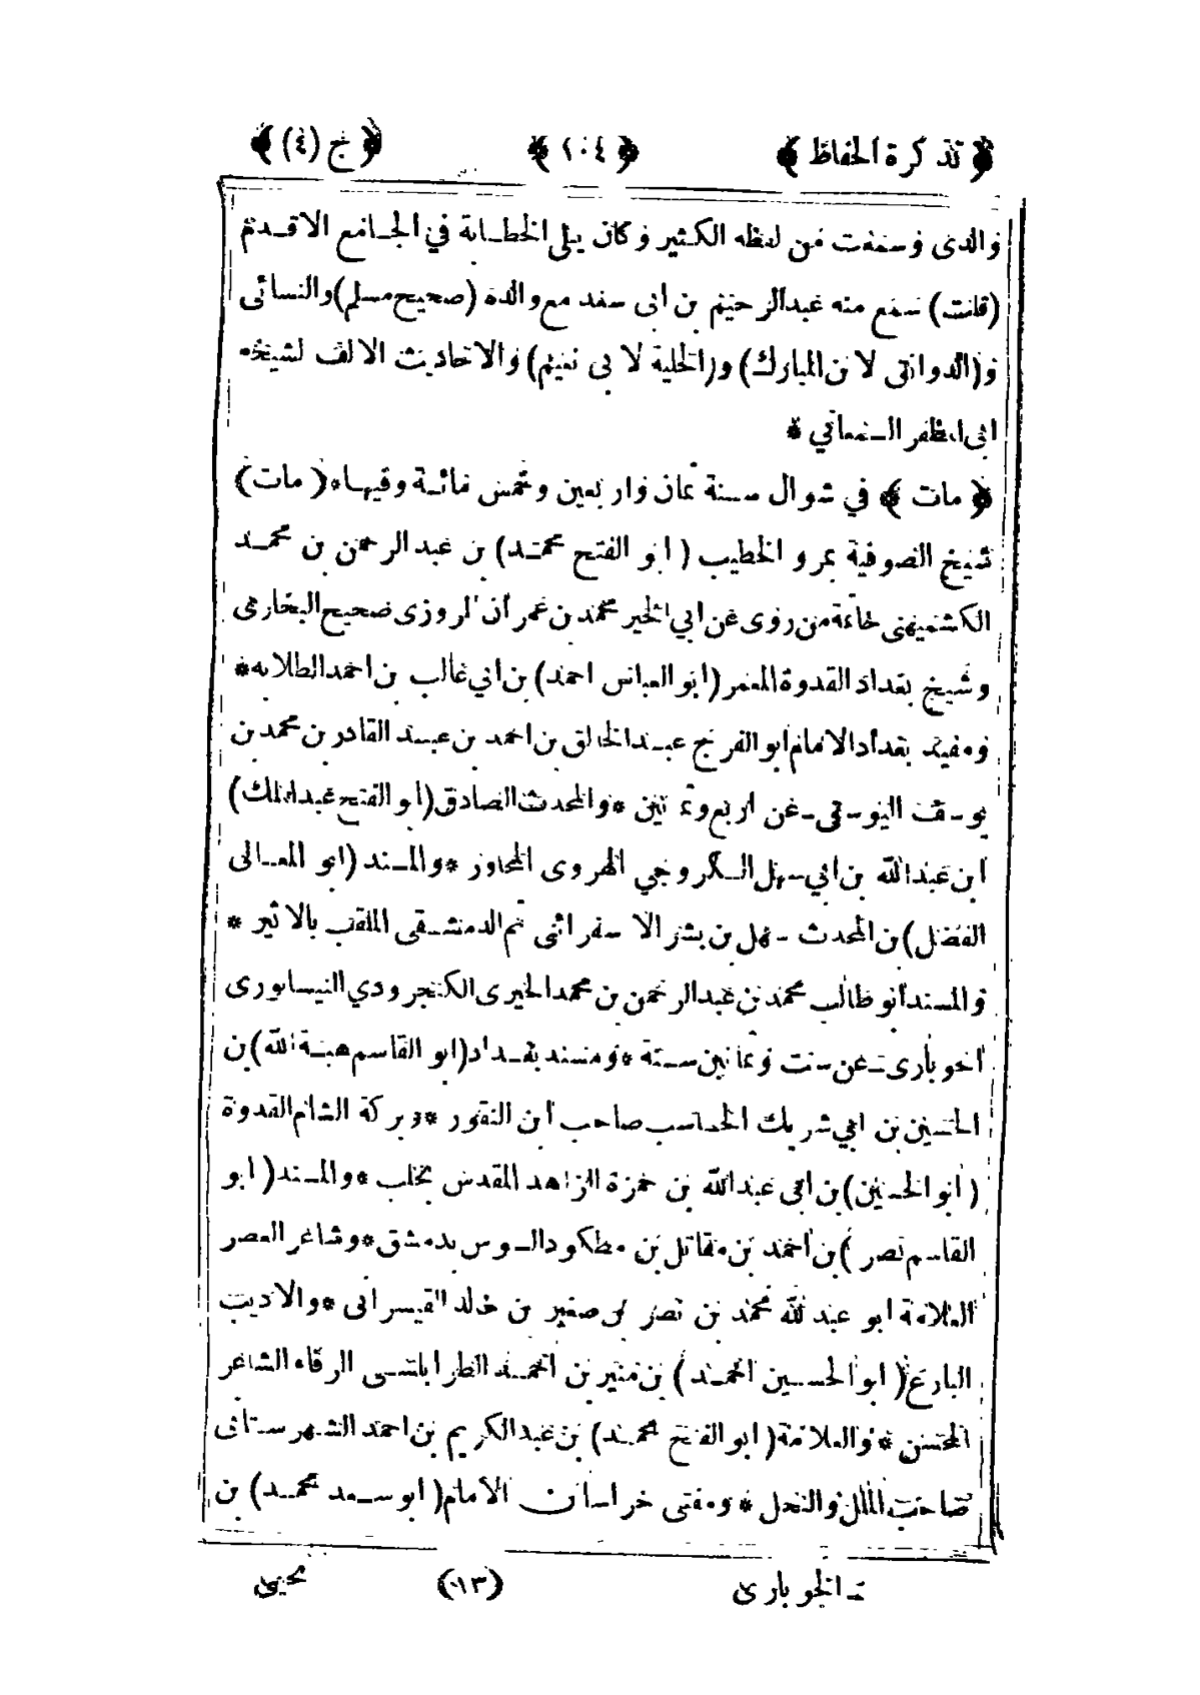 ﴿ تذكرة الحفاظ ﴾ ﴿ ١٠٤ ﴾ ﴿ ج (٤) ﴾
والدى وسمعت من لفظه الكثير وكان يلى الخطابة في الجامع الاقدم
(قلت) سمع منه عبدالرحيم بن ابى سعد مع والده (صحيح مسلم) والنسائى
و(الدقائق لابن المبارك) و(الحلية لابى نعيم) والاحاديث الالف لشيخه
ابى المظفر السمعانى *
﴿ مات ﴾ في شوال سنة ثمان واربعين وخمس مائة وفيها (مات)
شيخ الصوفية بمرو الخطيب (ابو الفتح محمد) بن عبد الرحمن بن محمد
الكشميهنى خاتمة من روى عن ابي الخير محمد بن عمران المروزى صحيح البخارى
وشيخ بغداد القدوة المعمر (ابو العباس احمد) بن ابي غالب بن احمد الطلايه *
ومفيد بغداد الامام ابو الفرج عبدالخالق بن احمد بن عبد القادر بن محمد بن
يوسف اليوسفى عن اربع وثمانين * والمحدث الصادق (ابو الفتح عبدالملك)
ابن عبدالله بن ابي سهل الكروخي الهروى المجاور * والمسند (ابو المعالى
الفضل) بن المحدث سهل بن بشر الاسفرائنى ثم الدمشقى الملقب بالاثير *
والمسند ابو طالب محمد بن عبد الرحمن بن محمد الحيرى الكنجرودي النيسابورى
عن ست وثمانين سنة * ومسند بغداد (ابو القاسم هبة الله) بن
الحسين بن ابي شريك الحاسب صاحب ابن النقور * وبركة الشام القدوة
(ابو الحسين) بن ابى عبدالله بن حمزة الزاهد المقدسى بحلب * والمسند (ابو
القاسم نصر) بن احمد بن مقاتل بن مطكود السوسى بدمشق * وشاعر العصر
العلامة ابو عبد الله محمد بن نصر بن صغير بن خالد القيسرانى * والاديب
البارع (ابو الحسين احمد) بن منير بن احمد الطرابلسى الرفاء الشاعر
المحسن * والعلامة (ابو الفتح محمد) بن عبدالكريم بن احمد الشهرستانى
صاحب الملل والنحل * ومفتى خراسان الامام (ابو سعد محمد) بن
الجوبارى (١٣) يحيى